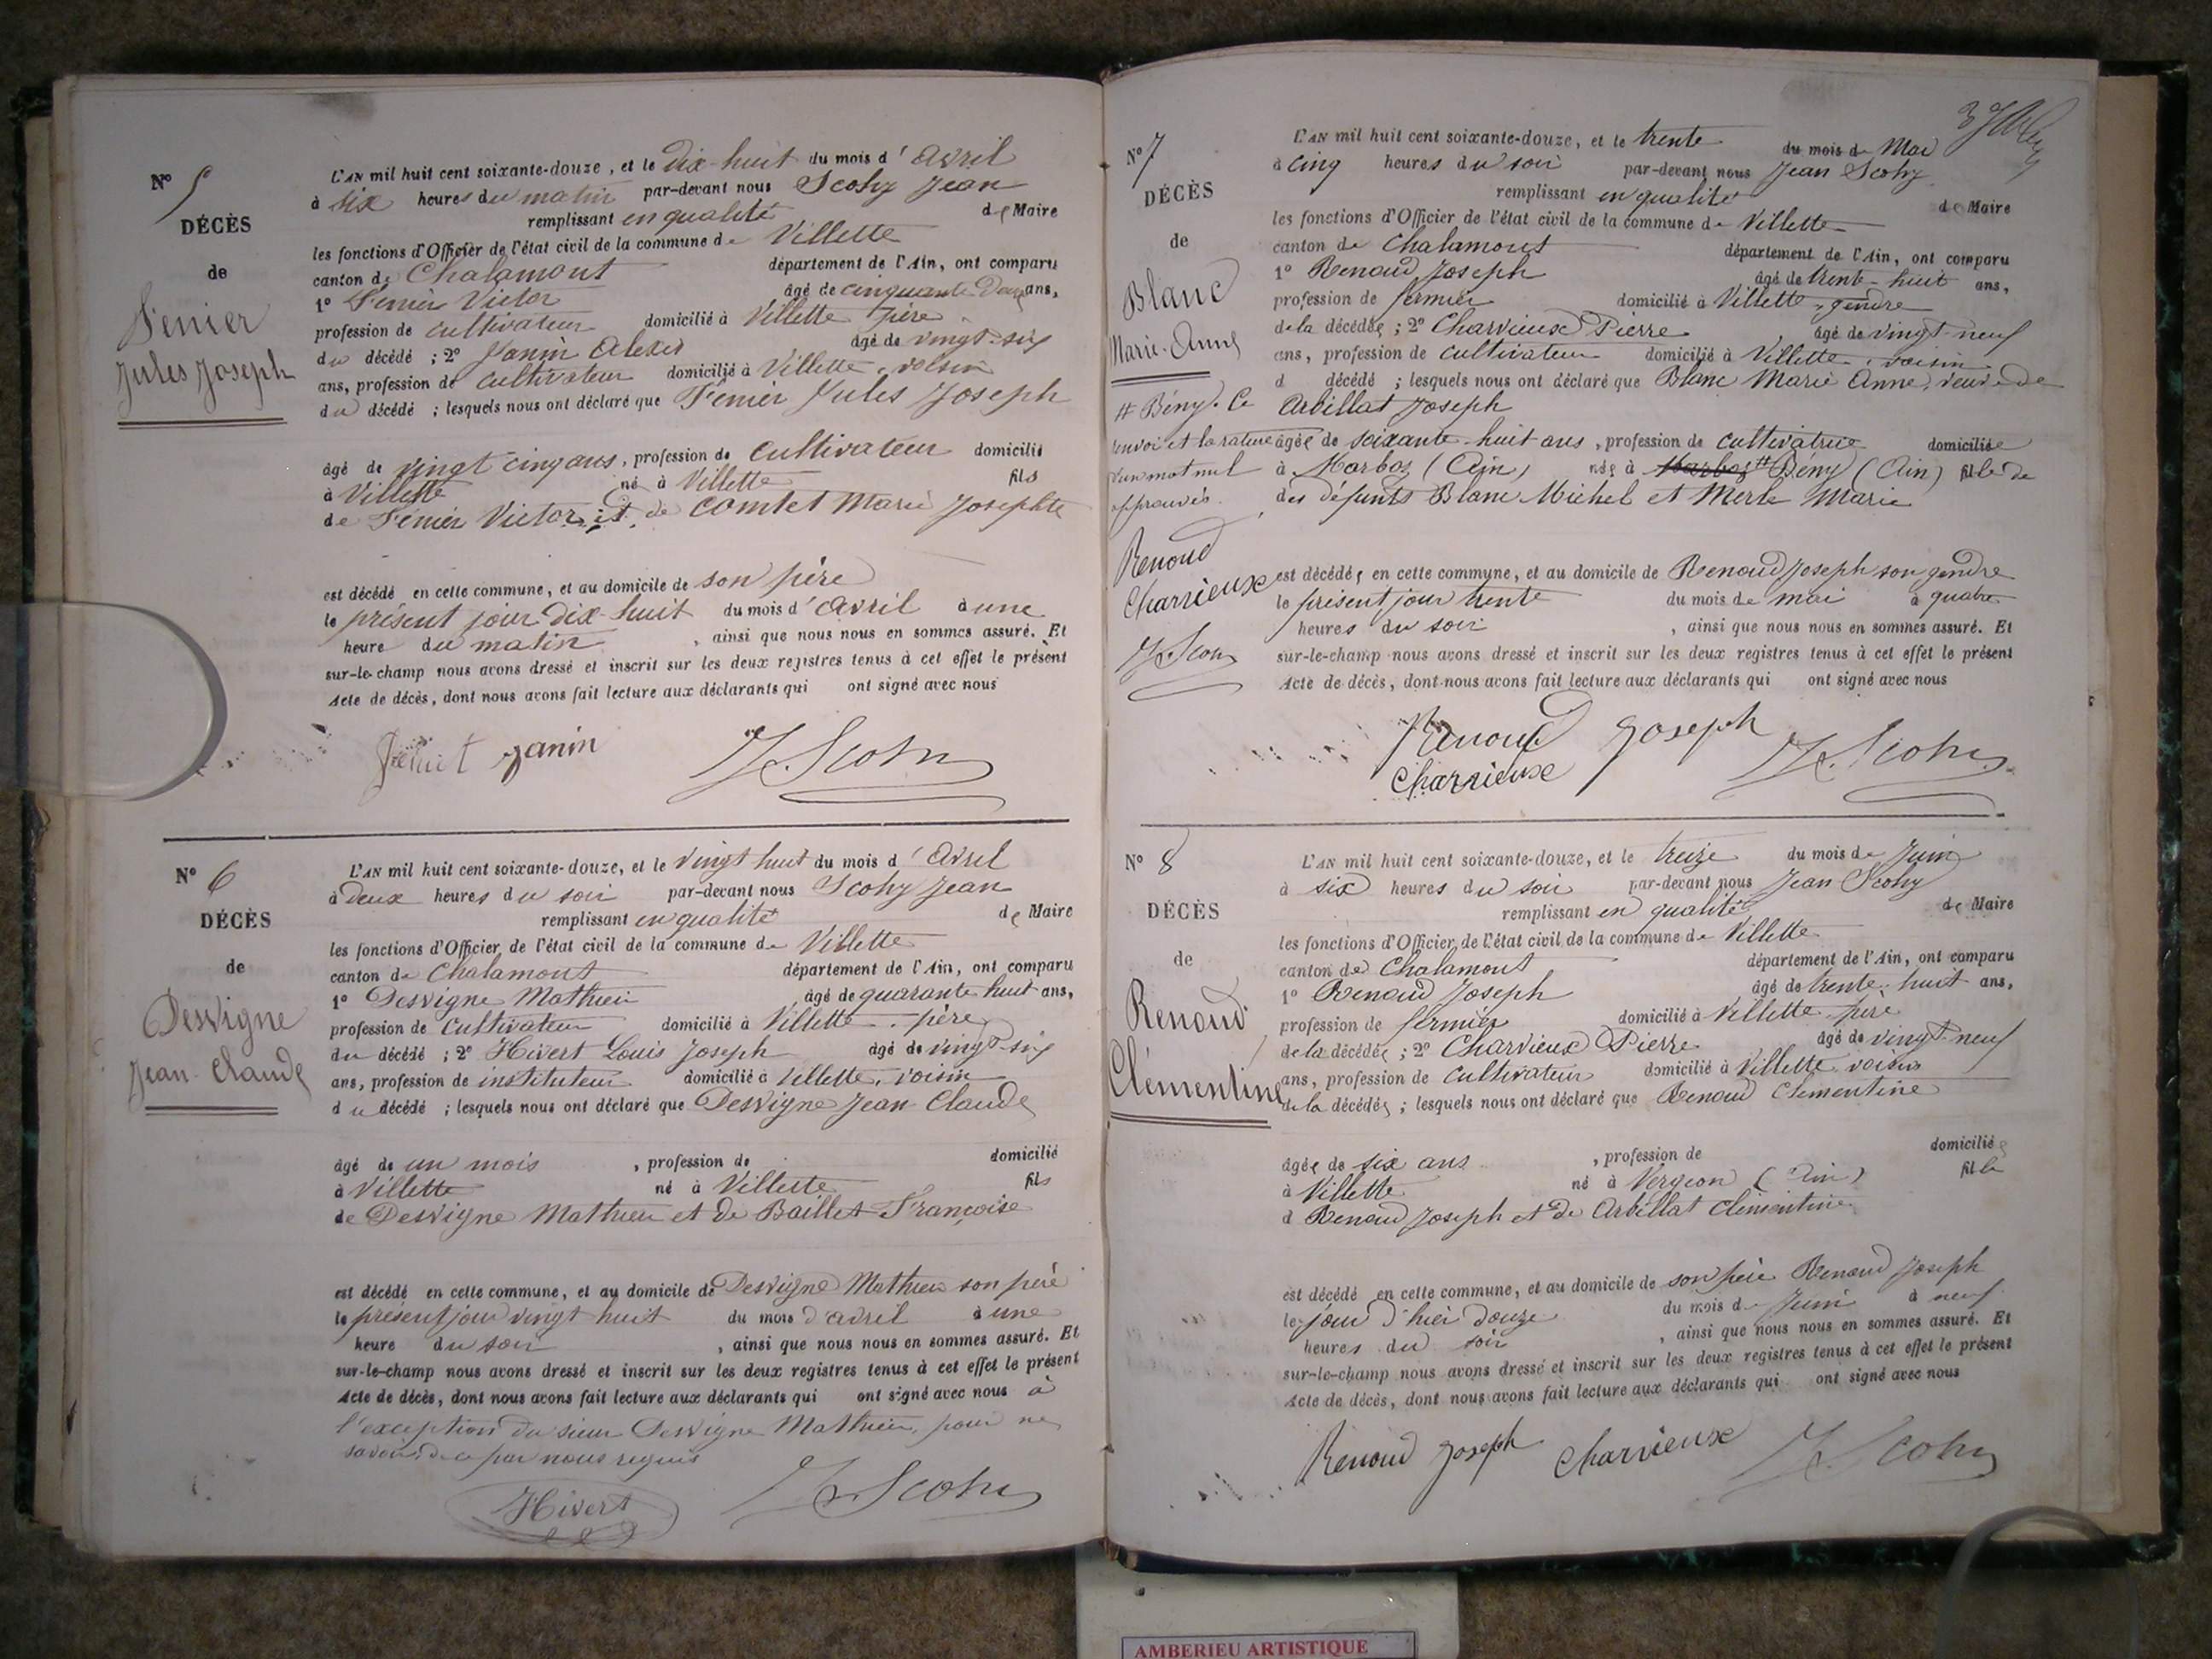 N° 5
DÉCÈS
de
Fenier
Jules Joseph
L'AN mil huit cent soixante-douze, et le dix-huit du mois d'avril
à six heures du matin par-devant nous Scohy Jean
remplissant en qualité de Maire
les fonctions d'Officier de l'état civil de la commune de Villette
canton de Chalamont département de l'Ain, ont comparu
1° Fenier Victor âgé de cinquante deux ans,
profession de cultivateur domicilié à Villette père
du décédé ; 2° Janin Alexis âgé de vingt-six
ans, profession de cultivateur domicilié à Villette, voisin
du décédé ; lesquels nous ont déclaré que Fenier Jules Joseph
âgé de vingt cinq ans, profession de cultivateur domicilié
à Villette né à Villette fils
de Fenier Victor et de Comtet Marie Josephte
est décédé en cette commune, et au domicile de son père
le présent jour dix-huit du mois d'avril à une
heure du matin, ainsi que nous nous en sommes assuré. Et
sur-le-champ nous avons dressé et inscrit sur les deux registres tenus à cet effet le présent
Acte de décès, dont nous avons fait lecture aux déclarants qui ont signé avec nous
Janin J. Scohy
N° 6
DÉCÈS
de
Desvigne
Jean-Claude
L'AN mil huit cent soixante-douze, et le vingt huit du mois d'avril
à deux heures du soir par-devant nous Scohy Jean
remplissant en qualité de Maire
les fonctions d'Officier de l'état civil de la commune de Villette
canton de Chalamont département de l'Ain, ont comparu
1° Desvigne Mathieu âgé de quarante huit ans,
profession de cultivateur domicilié à Villette, père
du décédé ; 2° Hivert Louis Joseph âgé de vingt-six
ans, profession de instituteur domicilié à Villette, voisin
du décédé ; lesquels nous ont déclaré que Desvigne Jean-Claude
âgé de un mois, profession de domicilié
à Villette né à Villette fils
de Desvigne Mathieu et de Baillet Françoise
est décédé en cette commune, et au domicile de Desvigne Mathieu son père
le présent jour vingt huit du mois d'avril à une
heure du soir, ainsi que nous nous en sommes assuré. Et
sur-le-champ nous avons dressé et inscrit sur les deux registres tenus à cet effet le présent
Acte de décès, dont nous avons fait lecture aux déclarants qui ont signé avec nous à
l'exception du sieur Desvigne Mathieu, pour ne
savoir, de ce par nous requis
Hivert J. Scohy
N° 7
DÉCÈS
de
Blanc
Marie-Anne
# Bény. Ce
renvoi et la rature
d'un mot nul
approuvés.
Renoud
Charvieux
J. Scohy
L'AN mil huit cent soixante-douze, et le trente du mois de Mai
à cinq heures du soir par-devant nous Jean Scohy
remplissant en qualité de Maire
les fonctions d'Officier de l'état civil de la commune de Villette
canton de Chalamont département de l'Ain, ont comparu
1° Renoud Joseph âgé de trente-huit ans,
profession de fermier domicilié à Villette, gendre
de la décédée ; 2° Charvieux Pierre âgé de vingt-neuf
ans, profession de cultivateur domicilié à Villette, voisin
d décédé ; lesquels nous ont déclaré que Blanc Marie Anne, veuve de
Arbillat Joseph
âgée de soixante-huit ans, profession de cultivatrice domiciliée
à Marboz (Ain) née à Marboz # Bény (Ain) fille de
des défunts Blanc Michel et Merle Marie
est décédée en cette commune, et au domicile de Renoud Joseph son gendre
le présent jour trente du mois de mai à quatre
heures du soir, ainsi que nous nous en sommes assuré. Et
sur-le-champ nous avons dressé et inscrit sur les deux registres tenus à cet effet le présent
Acte de décès, dont nous avons fait lecture aux déclarants qui ont signé avec nous
Renoud Joseph
Charvieux J. Scohy
N° 8
DÉCÈS
de
Renoud
Clémentine
L'AN mil huit cent soixante-douze, et le treize du mois de Juin
à six heures du soir par-devant nous Jean Scohy
remplissant en qualité de Maire
les fonctions d'Officier de l'état civil de la commune de Villette
canton de Chalamont département de l'Ain, ont comparu
1° Renoud Joseph âgé de trente-huit ans,
profession de fermier domicilié à Villette père
de la décédée ; 2° Charvieux Pierre âgé de vingt-neuf
ans, profession de cultivateur domicilié à Villette voisin
de la décédée ; lesquels nous ont déclaré que Renoud Clémentine
âgée de six ans, profession de domiciliée
à Villette né à Vergeon (Ain) fille
d Renoud Joseph et de Arbillat Clémentine
est décédé en cette commune, et au domicile de son père Renoud Joseph
le jour d'hier douze du mois de Juin à neuf
heures du soir, ainsi que nous nous en sommes assuré. Et
sur-le-champ nous avons dressé et inscrit sur les deux registres tenus à cet effet le présent
Acte de décès, dont nous avons fait lecture aux déclarants qui ont signé avec nous
Renoud Joseph Charvieux J. Scohy
AMBERIEU ARTISTIQUE